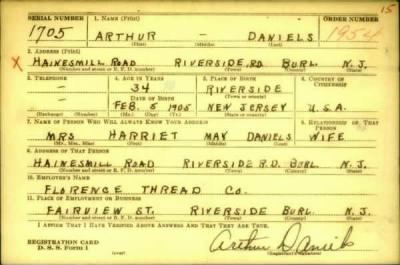 15
SERIAL NUMBER 1. NAME (Print) ORDER NUMBER
1705 ARTHUR - DANIELS 1954
(First) (Middle) (Last)
2. ADDRESS (Print)
X HAINESMILL ROAD RIVERSIDE, RD. BURL. N.J.
(Number and street or R. F. D. number) (Town) (County) (State)
3. TELEPHONE 4. AGE IN YEARS 5. PLACE OF BIRTH 6. COUNTRY OF CITIZENSHIP
- 34 RIVERSIDE
DATE OF BIRTH (Town or county)
- FEB. 5 1905 NEW JERSEY U.S.A.
(Exchange) (Number) (Mo.) (Day) (Yr.) (State or country)
7. NAME OF PERSON WHO WILL ALWAYS KNOW YOUR ADDRESS 8. RELATIONSHIP OF THAT PERSON
MRS HARRIET MAY DANIELS WIFE
(Mr., Mrs., Miss) (First) (Middle) (Last)
9. ADDRESS OF THAT PERSON
HAINESMILL ROAD RIVERSIDE R.D. BURL. N.J.
(Number and street or R. F. D. number) (Town) (County) (State)
10. EMPLOYER'S NAME
FLORENCE THREAD CO.
11. PLACE OF EMPLOYMENT OR BUSINESS
FAIRVIEW ST. RIVERSIDE BURL. N.J.
(Number and street or R. F. D. number) (Town) (County) (State)
I AFFIRM THAT I HAVE VERIFIED ABOVE ANSWERS AND THAT THEY ARE TRUE.
REGISTRATION CARD
D. S. S. Form 1 (over) Arthur Daniels
(Registrant's signature)